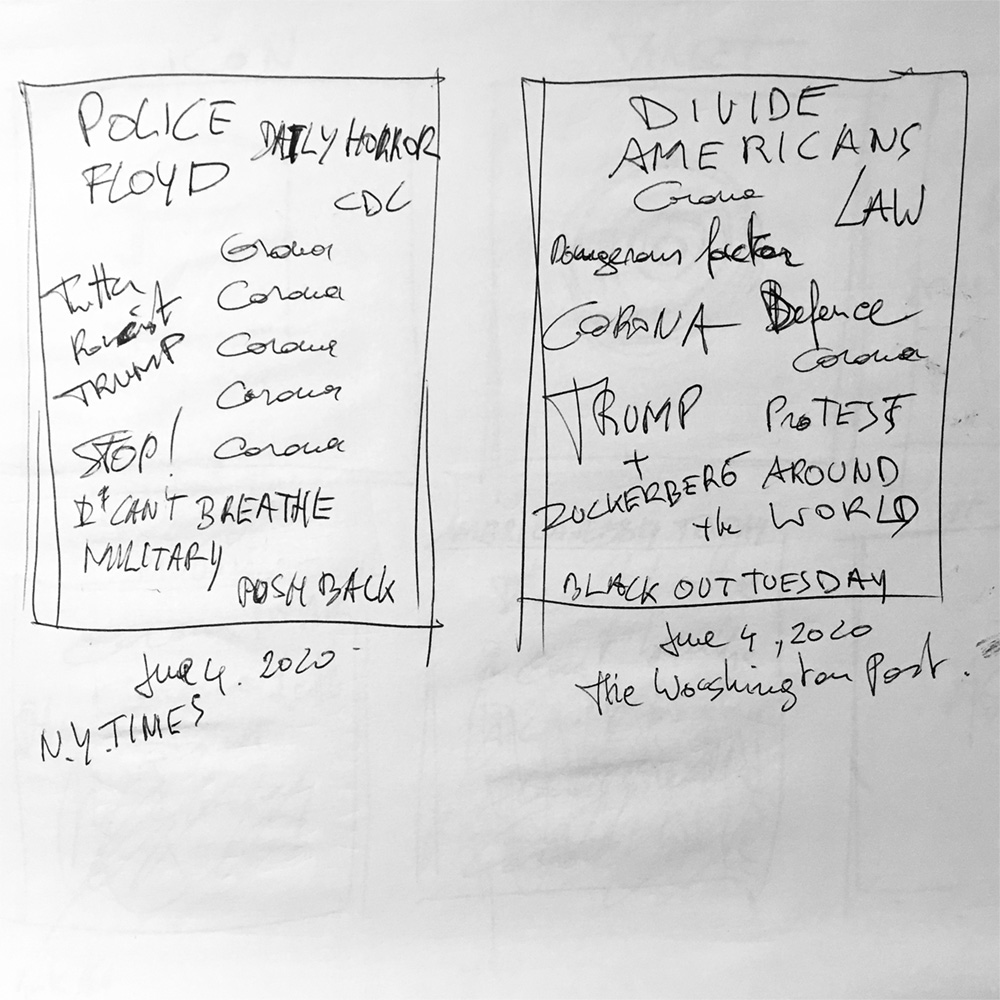 POLICE
FLOYD
DAILY HORROR
CDC
Corona
Twitter
Corona
Racist
TRUMP
Corona
Corona
STOP!
Corona
I CAN'T BREATHE
MILITARY
PUSH BACK
June 4. 2020
N.Y. TIMES
DIVIDE
AMERICANS
Corona
LAW
Dangerous factor
CORONA
Defence
Corona
TRUMP
PROTEST
+
ZUCKERBERG
AROUND
the WORLD
BLACK OUT TUESDAY
June 4, 2020
The Washington Post.